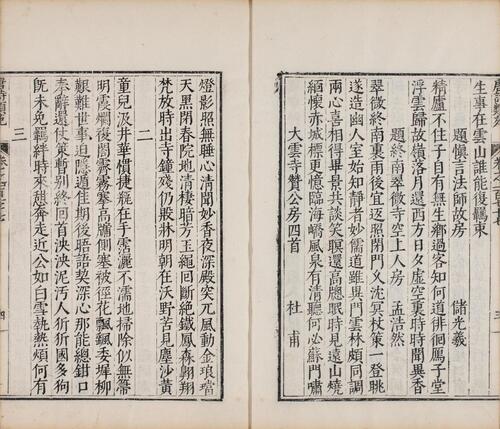 生事在雲山誰能復羈束
題愼言法師故房
儲光羲
精廬不住子自有無生鄉過客知何道徘徊鴈子堂
浮雲歸故嶺落月還西方日夕虛空裏時時聞異香
題終南翠微寺空上人房
孟浩然
翠微終南裏雨後宜返照閉關久沈冥杖策一登眺
遂造幽人室始知靜者妙儒道雖異門雲林頗同調
兩心喜相得畢景共談笑暝還高䆫眠時見遠山燒
緬懷赤城標更憶臨海嶠風泉有清聽何必蘇門嘯
大雲寺贊公房四首
杜甫
燈影照無睡心清聞妙香夜深殿突兀風動金琅璫
天黑閉春院地清棲暗芳玉繩回斷絶鐵鳳森翱翔
梵放時出寺鐘殘仍殷牀明朝在沃野苦見塵沙黃
二
童兒汲井華慣捷甁在手霑灑不濡地掃除似無箒
明霞爛復閣霽霧搴高牖側塞被徑花飄飄委墀柳
艱難世事迫隱遁佳期後晤語契深心那能總鉗口
奉辭還杖策暫別終回首泱泱泥污人狺狺國多狗
旣未免羈絆時來憩奔走近公如白雪執熱煩何有
三
四